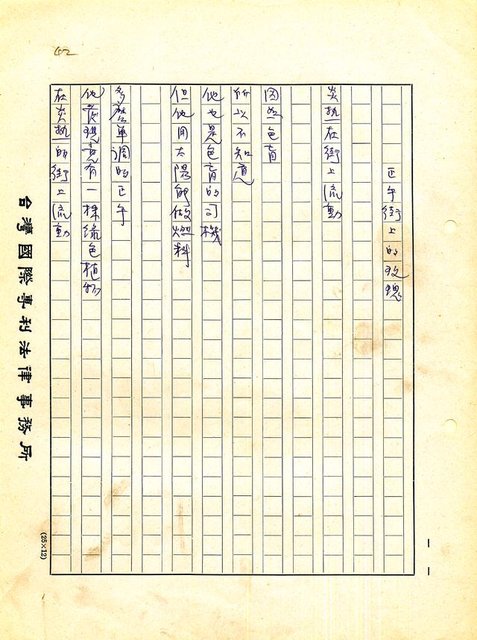 62
正午街上的玫瑰
炎熱在街上流動
因為色盲
所以不知道
他也是色盲的司機
但他用太陽能做燃料
多麼單調的正午
他發現竟有一株綠色植物
在炎熱的街上流動
台灣國際專利法律事務所
(25×12)